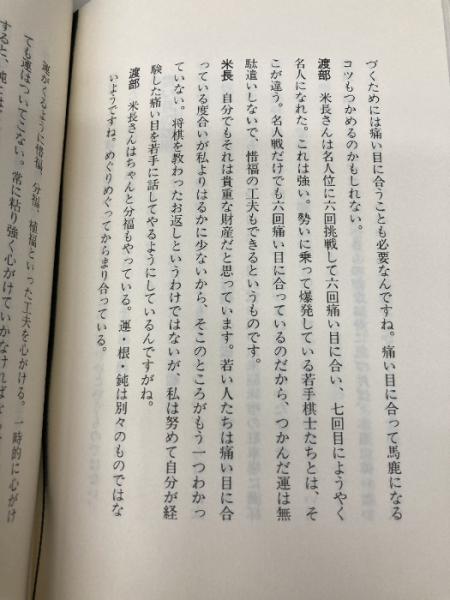 づくためには痛い目に合うことも必要なんですね。痛い目に合って馬鹿になる
コツもつかめるのかもしれない。
渡部　米長さんは名人位に六回挑戦して六回痛い目に合い、七回目にようやく
名人になれた。これは強い。勢いに乗って爆発している若手棋士たちとは、そ
こが違う。名人戦だけでも六回痛い目に合っているのだから、つかんだ運は無
駄遣いしないで、惜福の工夫もできるというものです。
米長　自分でもそれは貴重な財産だと思っています。若い人たちは痛い目に合
っている度合いが私よりはるかに少ないから、そこのところがもう一つわかっ
ていない。将棋を教わったお返しというわけではないが、私は努めて自分が経
験した痛い目を若手に話してやるようにしているんですがね。
渡部　米長さんはちゃんと分福もやっている。運・根・鈍は別々のものではな
いようですね。めぐりめぐってからまり合っている。
運がくるように惜福、分福、植福といった工夫を心がける。一時的に心がけ
ても運はついてこない。常に粘り強く心がけていかなければ
すると、鈍には